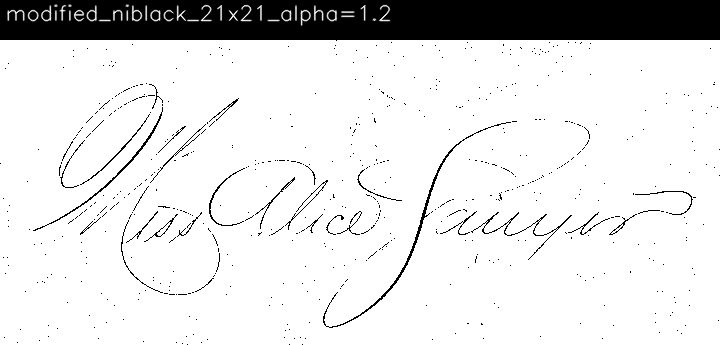 modified_niblack_21x21_alpha=1.2
Miss Alice Sawyer